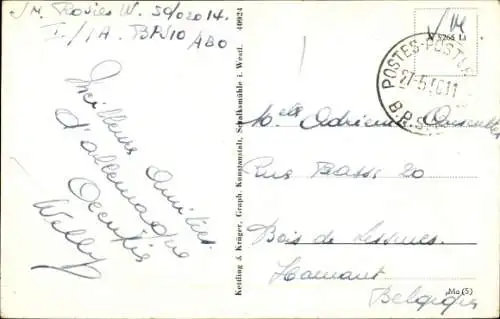 J/M. Rosies W. 50/02014.
I./1A. BPS10 ABO
Meilleurs Amitiés
d'allemagne
Occupée
Willy
49924
Kettling & Krüger, Graph. Kunstanstalt, Schalksmühle i. Westf.
5266 Ll
POSTES-POSTER
27-5
B.P.S.
Adrienne
Rue Basse 20
Bois de Lessines
Hainaut
Belgique
Mo (5)